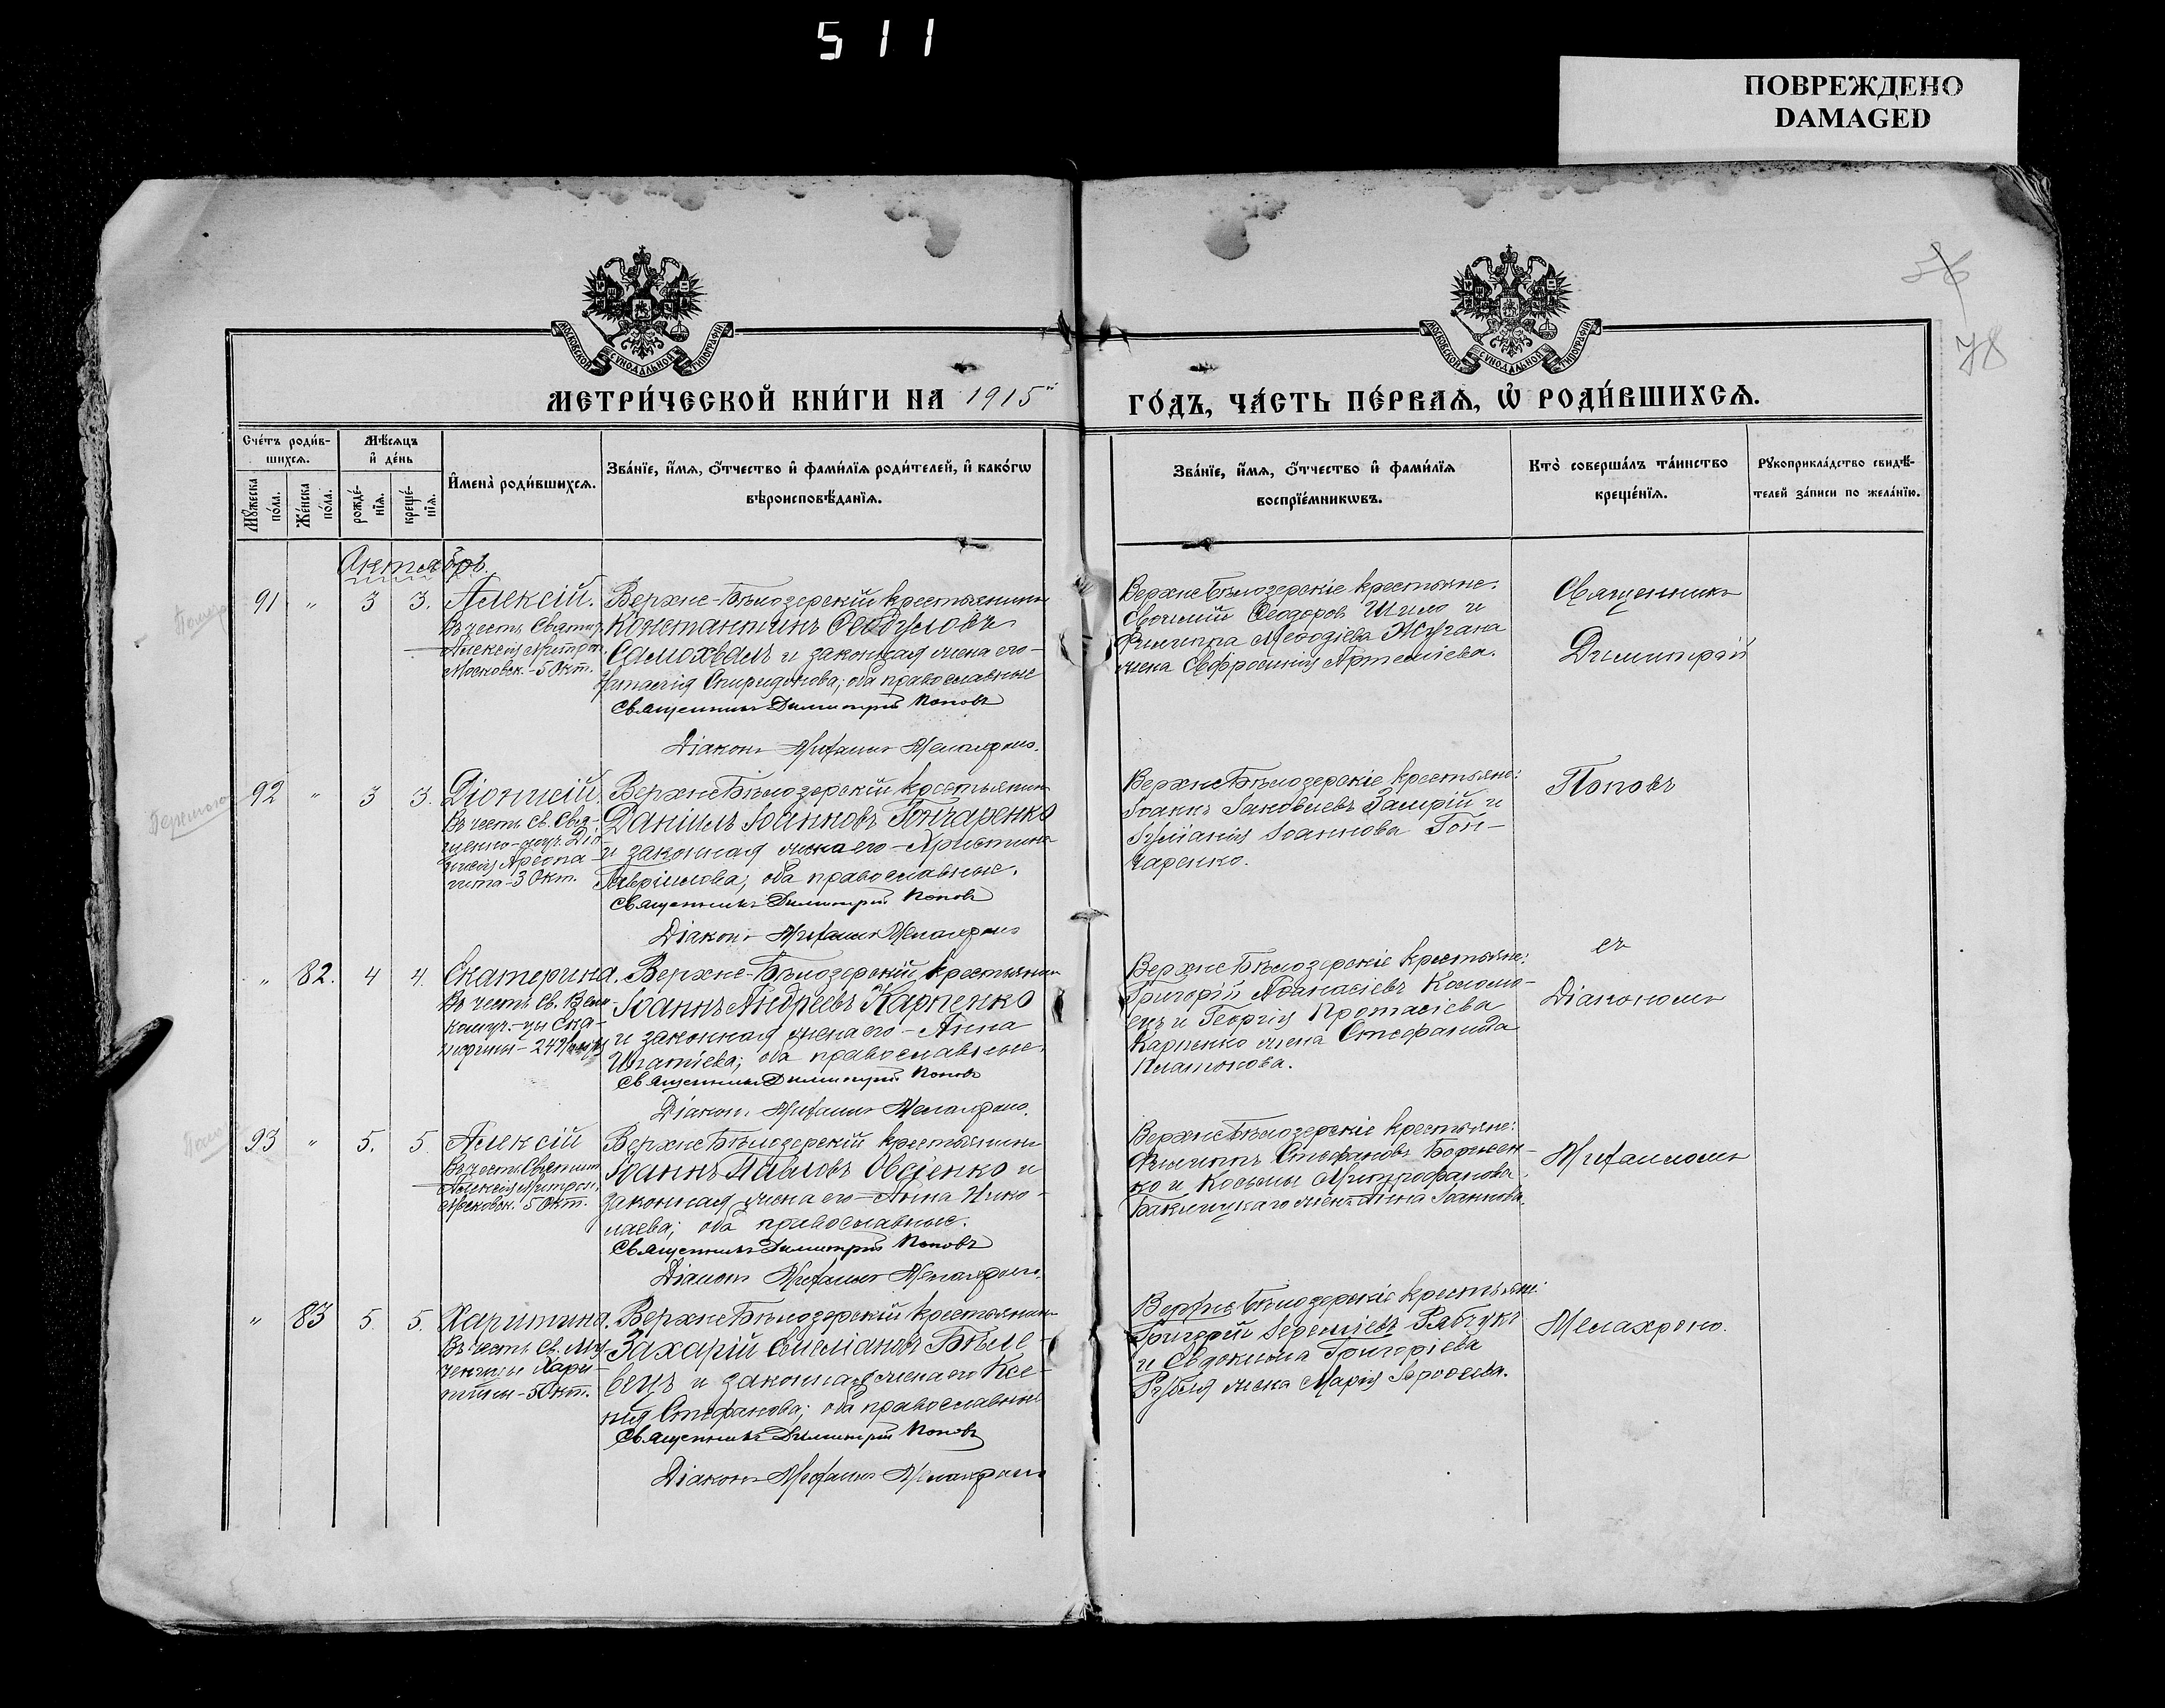 511
ПОВРЕЖДЕНО
DAMAGED
78
МОСКОВСКОЙ СѴНОДАЛЬНОЙ ТИПОГРАФІИ
МОСКОВСКОЙ СѴНОДАЛЬНОЙ ТИПОГРАФІИ
МЕТРИ́ЧЕСКОЙ КНИ́ГИ НА 1915й
ГО́ДЪ, ЧА́СТЬ ПЕ́РВАѦ, Ѡ҆ РОДИ́ВШИХСѦ.
Сче́тъ роди́в-
шихсѧ.
Мꙋ́жеска по́ла.
Же́нска по́ла.
Мѣ́сѧцъ
и҆ де́нь
рожде́-
нїѧ.
креще́-
нїѧ.
И҆мена̀ роди́вшихсѧ.
Зва́нїе, и҆́мѧ, ѻ҆́тчество и҆ фами́лїѧ роди́телей, и҆ како́гѡ
вѣроисповѣ́данїѧ.
Зва́нїе, и҆́мѧ, ѻ҆́тчество и҆ фами́лїѧ
воспрїе́мникѡвъ.
Кто̀ соверша́лъ та́инство
креще́нїѧ.
Рꙋкоприкла́дство свидѣ́-
телей за́писи по жела́нїю.
Октябрь.
91 " 3 3. Алексій.
Въ честь Святит.
Алексія Митроп.
Московск. - 5 Окт.
Верхне-Бѣлозерскій крестьянинъ
Константинъ Ѳеодуловъ
Самохвалъ и законная жена его-
Анастасія Спиридонова; оба православные
Священникъ Димитрій Поповъ
Діаконъ Мелахроно.
Верхне Бѣлозерскіе крестьяне:
Ѳеодоровъ Шило и
Филиппа Меѳодіева Жугана
жена Евфросинія Артемиева.
Священникъ
Димитрій
92 " 3 3. Діонисій.
Въ честь Св. Свя-
щенно-муч. Діо-
нисія Ареопа-
гита - 3 Окт.
Верхне Бѣлозерскій крестьянинъ
Даніилъ Іоанновъ Гончаренко
и законная жена его - Христина
Гавріилова; оба православные.
Священникъ Димитрій Поповъ
Діаконъ Мелахроно
Верхне Бѣлозерскіе крестьяне:
Іоаннъ Іаковлевъ и
Іуліанія Іоаннова Гон-
чаренко.
Поповъ
" 82. 4 4. Екатерина.
Въ честь Св. Вели-
комуч.-цы Ека-
терины - 24 Ноября
Верхне-Бѣлозерскій крестьянинъ
Іоаннъ Андреевъ Карпенко
и законная жена его - Анна
Игнатіева; оба православные.
Священникъ Димитрій Поповъ
Діаконъ Мелахроно.
Верхне Бѣлозерскіе крестьяне:
Григорій Аѳанасіевъ Коломо-
ецъ и Георгія Протасіева
Карпенко жена Стефанида
Платонова.
съ
Діакономъ
93 " 5. 5 Алексій
Въ честь Святит.
Алексія Митроп.
Московск. 5 Окт.
Верхне Бѣлозерскій крестьянинъ
Іоаннъ Павловъ Овсіенко и
законная жена его - Анна Нико-
лаева; оба православные.
Священникъ Димитрій Поповъ
Діаконъ Мелахроно.
Верхне Бѣлозерскіе крестьяне:
Филиппъ Стефановъ
ко и Косьмы Митрофанова
жена Анна Іоаннова.
Мелахроно.
" 83 5 5. Харитина.
Въ честь Св. Му-
ченицы Хари-
тины - 5 Окт.
Верхне Бѣлозерскій крестьянинъ
Захарій Емеліановъ Бѣле-
вецъ и законная жена его Ксе-
нія Стефанова; оба православные
Священникъ Димитрій Поповъ
Діаконъ
Верхне Бѣлозерскіе крестьяне:
Григорій Іереміевъ Рябчукъ
и Евдокима Григоріева
жена Марія